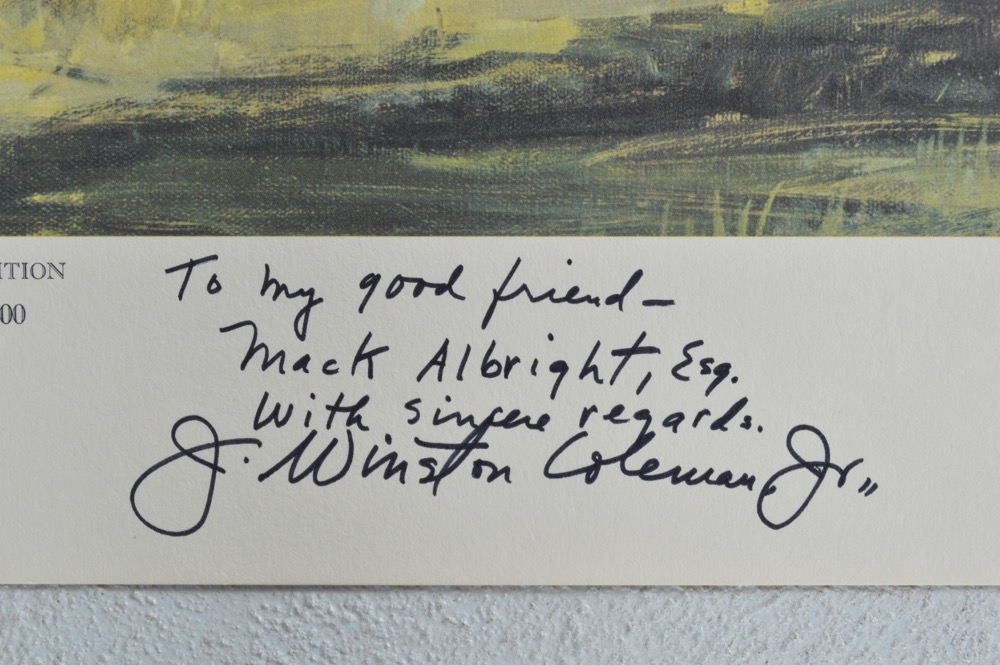 ITION
00
To my good friend—
Mack Albright, Esq.
With sincere regards.
J. Winston Coleman, Jr.,,